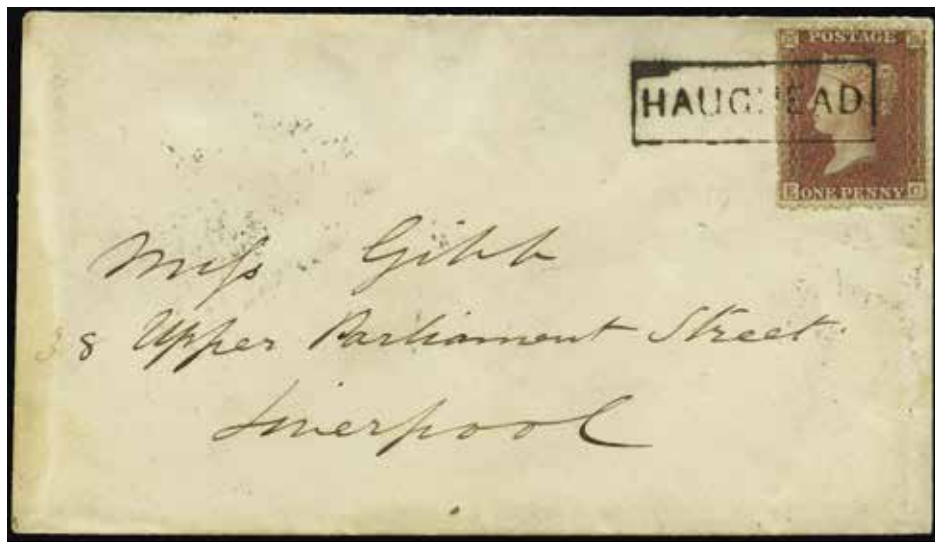 POSTAGE
HAUGHEAD
E ONE PENNY G
Miss Gibb
8 Upper Parliament Street
Liverpool